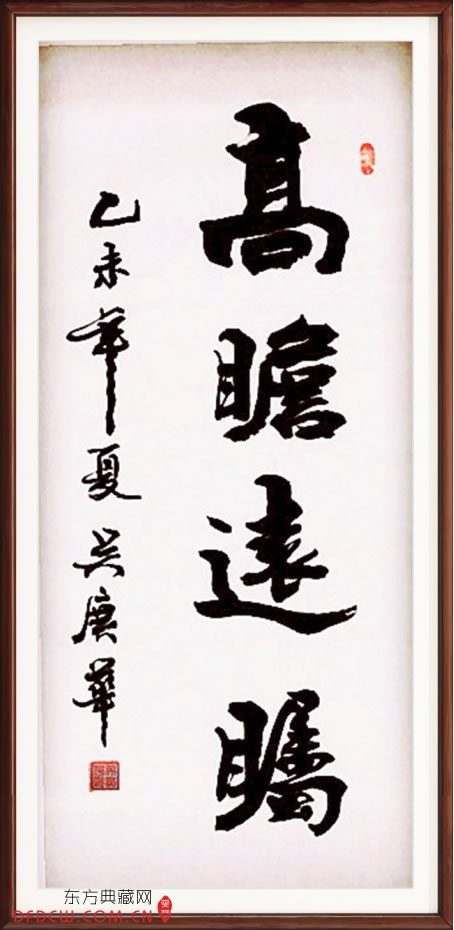 高瞻遠矚
乙未年夏吴庚華
东方典藏网
DFDCW.COM.CN